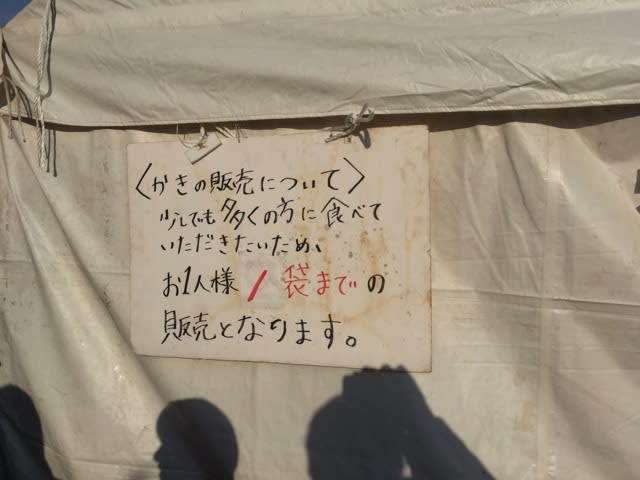 〈かきの販売について〉
少しでも多くの方に食べて
いただきたいため、
お1人様1袋までの
販売となります。